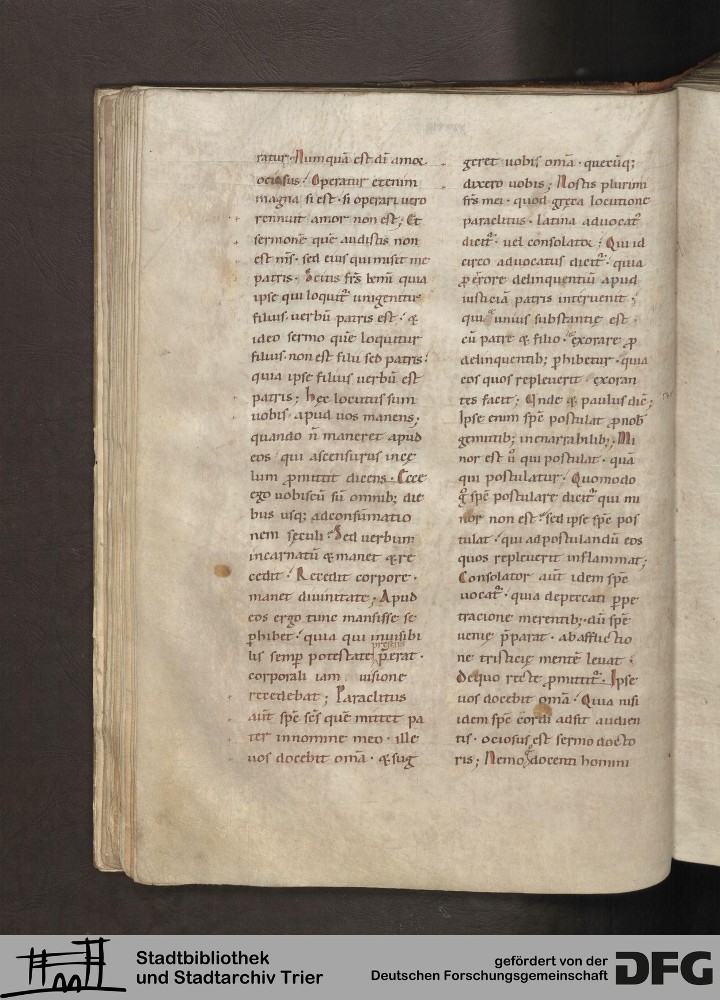 ratur. Numquā est dī amor
ociosus. Operatur etenim
magna si est. si operari uero
rennuit amor non est; Et
sermonē quē audistis non
est m̄s. sed eius qui misit me
patris. Scitis frs̄ kmī quia
ipse qui loquit̄ unigenitus
filius. uerbū patris est. &
ideo sermo quē loquitur
filius. non est filii sed patris.
quia ipse filius uerbū est
patris; hęc locutus sum
uobis apud uos manens.
quando n̄ maneret apud
eos qui ascensurus in cę
lum ꝓmittit dicens. Ecce
ego uobiscū sū omnib; die
bus usq; ad consūmatio
nem sęculi. Sed uerbum
incarnatū & manet & re
cedit. Recedit corpore.
manet diuinitate; Apud
eos ergo tunc mansisse se
ꝑhibet. quia qui inuisibi
lis semꝑ potestate p̄erat.
corporali iam uisione
recedebat; Paraclitus
aūt spē scs̄ quē mittet pa
ter in nomine meo. ille
uos docebit om̄a. & sug
geret uobis om̄a. quecūq;
dixero uobis; Nostis plurimi
frs̄ mei. quod gręca locutione
paraclitus. latina aduocat᷒
dicit̄. uel consolator; Qui id
circo aduocatus dicit̄. quia
ꝓ errore delinquentiū apud
iusticiā patris interuenit;
qui unius substantię est
cū patre & filio. exorare ꝓ
delinquentib; ꝑhibetur. quia
eos quos repleuerit exoran
tes facit; Unde & paulus dic̄;
Ipse enim spē postulat ꝓ nob̄
gemitib; inenarrabilib; Mi
nor est ū qui postulat. quā
qui postulatur. Quomodo
g̊ spē postulare dicit̄ qui mi
nor non est. sed ipse spē pos
tulat. qui ad postulandū eos
quos repleuerit inflammat;
Consolator aūt idem spē
uocat̄. quia de peccati ꝑpe
tracione merentib; dū spē
uenię p̄parat. ab afflictio
ne tristicię mentē leuat.
De quo recte ꝓmittit̄. Ipse
uos docebit om̄a. Quia nisi
idem spē cordi adsit audien
tis. ociosus est sermo docto
ris; Nemo docenti homini
Stadtbibliothek
und Stadtarchiv Trier
gefördert von der
Deutschen Forschungsgemeinschaft
DFG